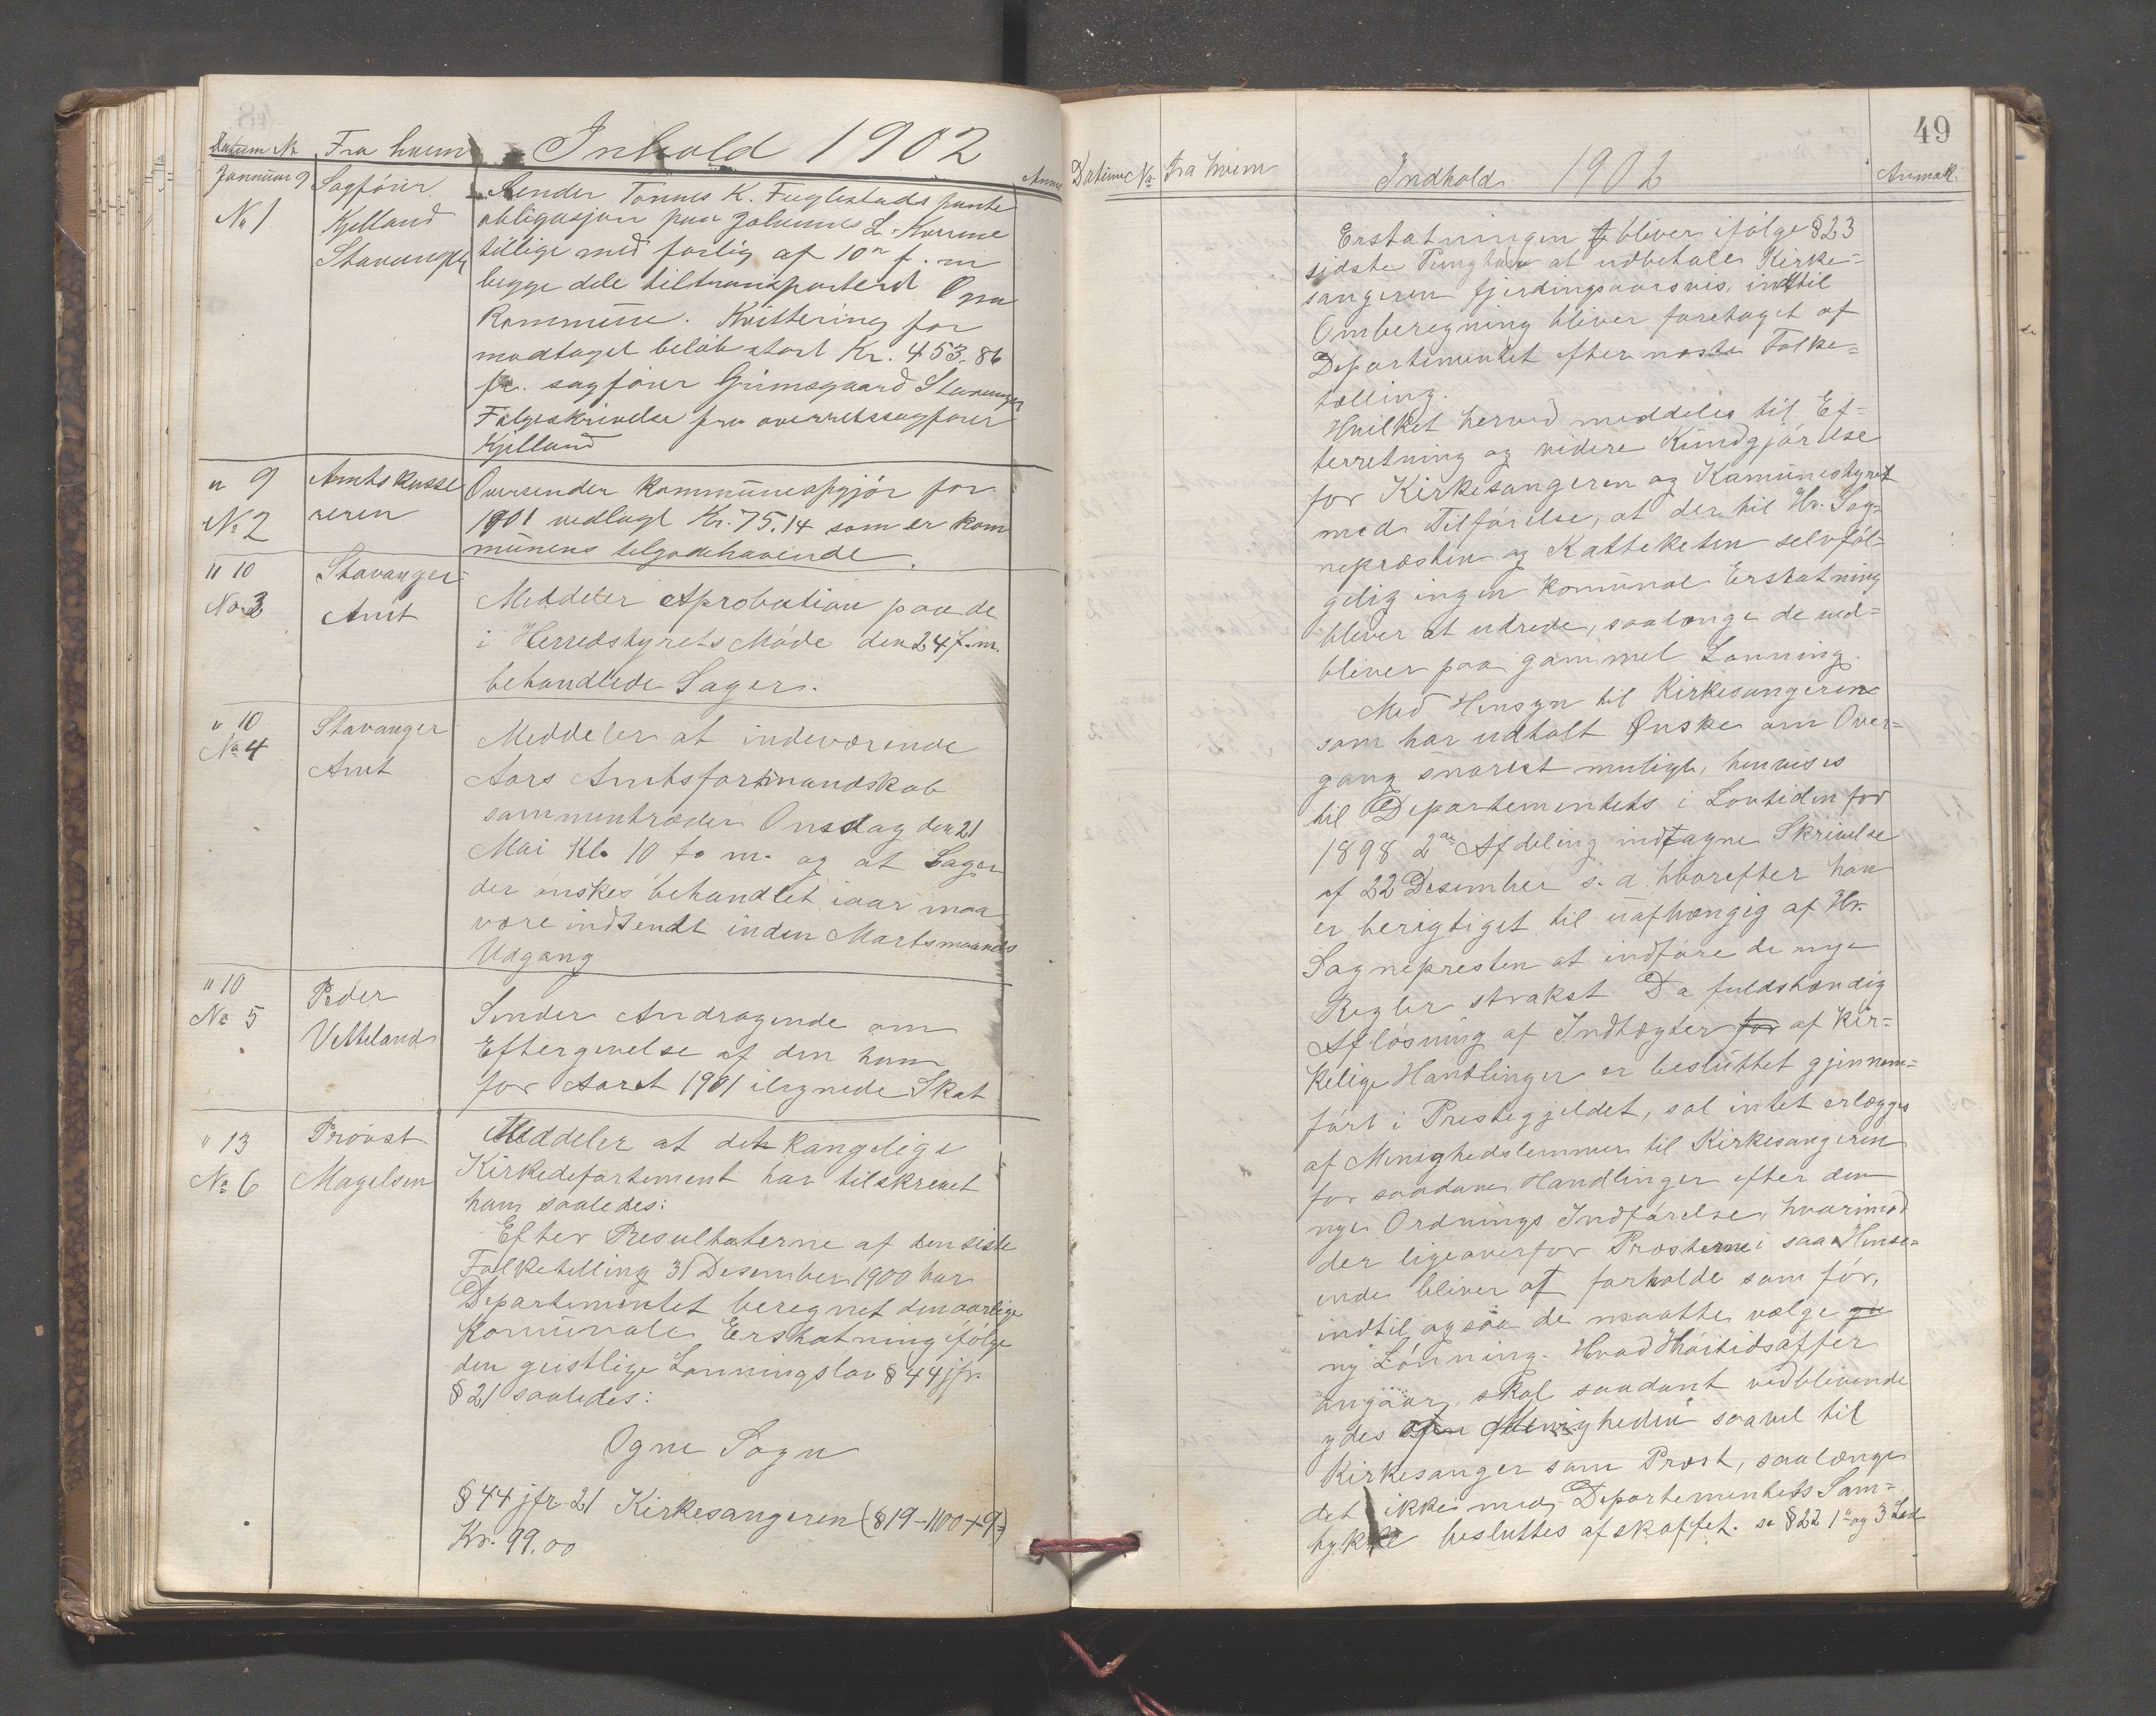 Datum No Fra hvem Inhold 1902 Anm
Januar 9
No 1
Sagförer
Kjelland
Stavanger
Sender Tonnes K. Fuglestads pante
obligasjon paa L. Kverme
tillige med forlig af 10n f. m
begge dele tiltransporterd Ogna
Kommune. Kvittering for
modtaget belöb stort Kr. 453.86
fr. sagförer Grimsgaard Stavanger
Fölgeskrivelse fra overretssagförer
Kjelland
" 9
No 2
Amtskasse
reren
Oversender kommuneopgjör for
1901 vedlagt Kr. 75.14 som er kom
munens tilgodehavende.
" 10
No 3
Stavanger
Amt
Meddeler Aprobation paa de
i Herredstyrets Möde den 24 f.m.
behandlede Sager.
" 10
No 4
Stavanger
Amt
Meddeler at indeværende
Aars Amtsformandskab
sammentræder Onsdag den 21
Mai Kl. 10 f. m. og at Sager
der önskes behandlet iaar maa
være indsendt inden Martsmaaneds
Udgang
" 10
No 5
Peder
Vetteland
Sender Andragende om
Eftergivelse af den ham
for Aaret 1901 ilignede Skat
" 13
No 6
Provst
Magelsen
Meddeler at det kongelige
Kirkedepartement har tilskrevet
ham saaledes:
Efter Resultaterne af den siste
Folketelling 31 Desember 1900 har
Departementet beregnet den aarlige
Komunale Erstatning ifölge
den geistlige Lønningslov § 44 jfr.
§ 21 saaledes:
Ogne Sogn
§ 44 jfr 21 Kirkesangeren (819-1100+9=)
Kr. 99.00
49
Datum No Fra hvem Indhold 1902 Anmæk.
Erstatningen bliver ifölge § 23
sidste at udbetale Kirke=
sangeren fjerdingsaarsvis, indtil
Omberegning bliver foretaget af
Departementet efter næste Folke=
tælling.
Hvilket herved meddeles til Ef=
terretning og videre Kundgjörelse
for Kirkesangeren og Komunestyret
med Tilföielse, at der til Hr. Sog=
nepræsten og Katteketen selvföl=
gelig ingen komunal Erstatning
bliver at udrede, saalænge de ved=
bliver paa gammel Lønning.
Med Hensyn til Kirkesangeren
som har udtalt Önske om Over=
gang snarest muligt, henvises
til Departementets i Lovtidin for
1898 2en Afdeling indtagne Skrivelse
af 22 Desember s. a. hvorefter han
er berigtiget til uafhængig af Hr.
Sognepresten at indföre de nye
Regler strakst. Da fuldstændig
Aflösning af Indtægter for af kir=
kelige Handlinger er besluttet gjennem=
fört i Prestegjeldet, sal intet erlægges
af Menighedslemmer til Kirkesangeren
for saadane Handlinger efter den
nye Ordnings Indförelse, hvorimod
der ligeoverfor Præsterne i saa Hense=
ende bliver at forholde som för,
indtil ogsaa de maatte vælge
ny Lönning. Hvad Höitidsoffer
angaar, skal saadant vedblivende
ydes Menigheden saavel til
Kirkesanger som Præst, saalænge
det ikke med Departementets Sam=
tykke besluttes afskaffet. se § 22 1te og 3 Led